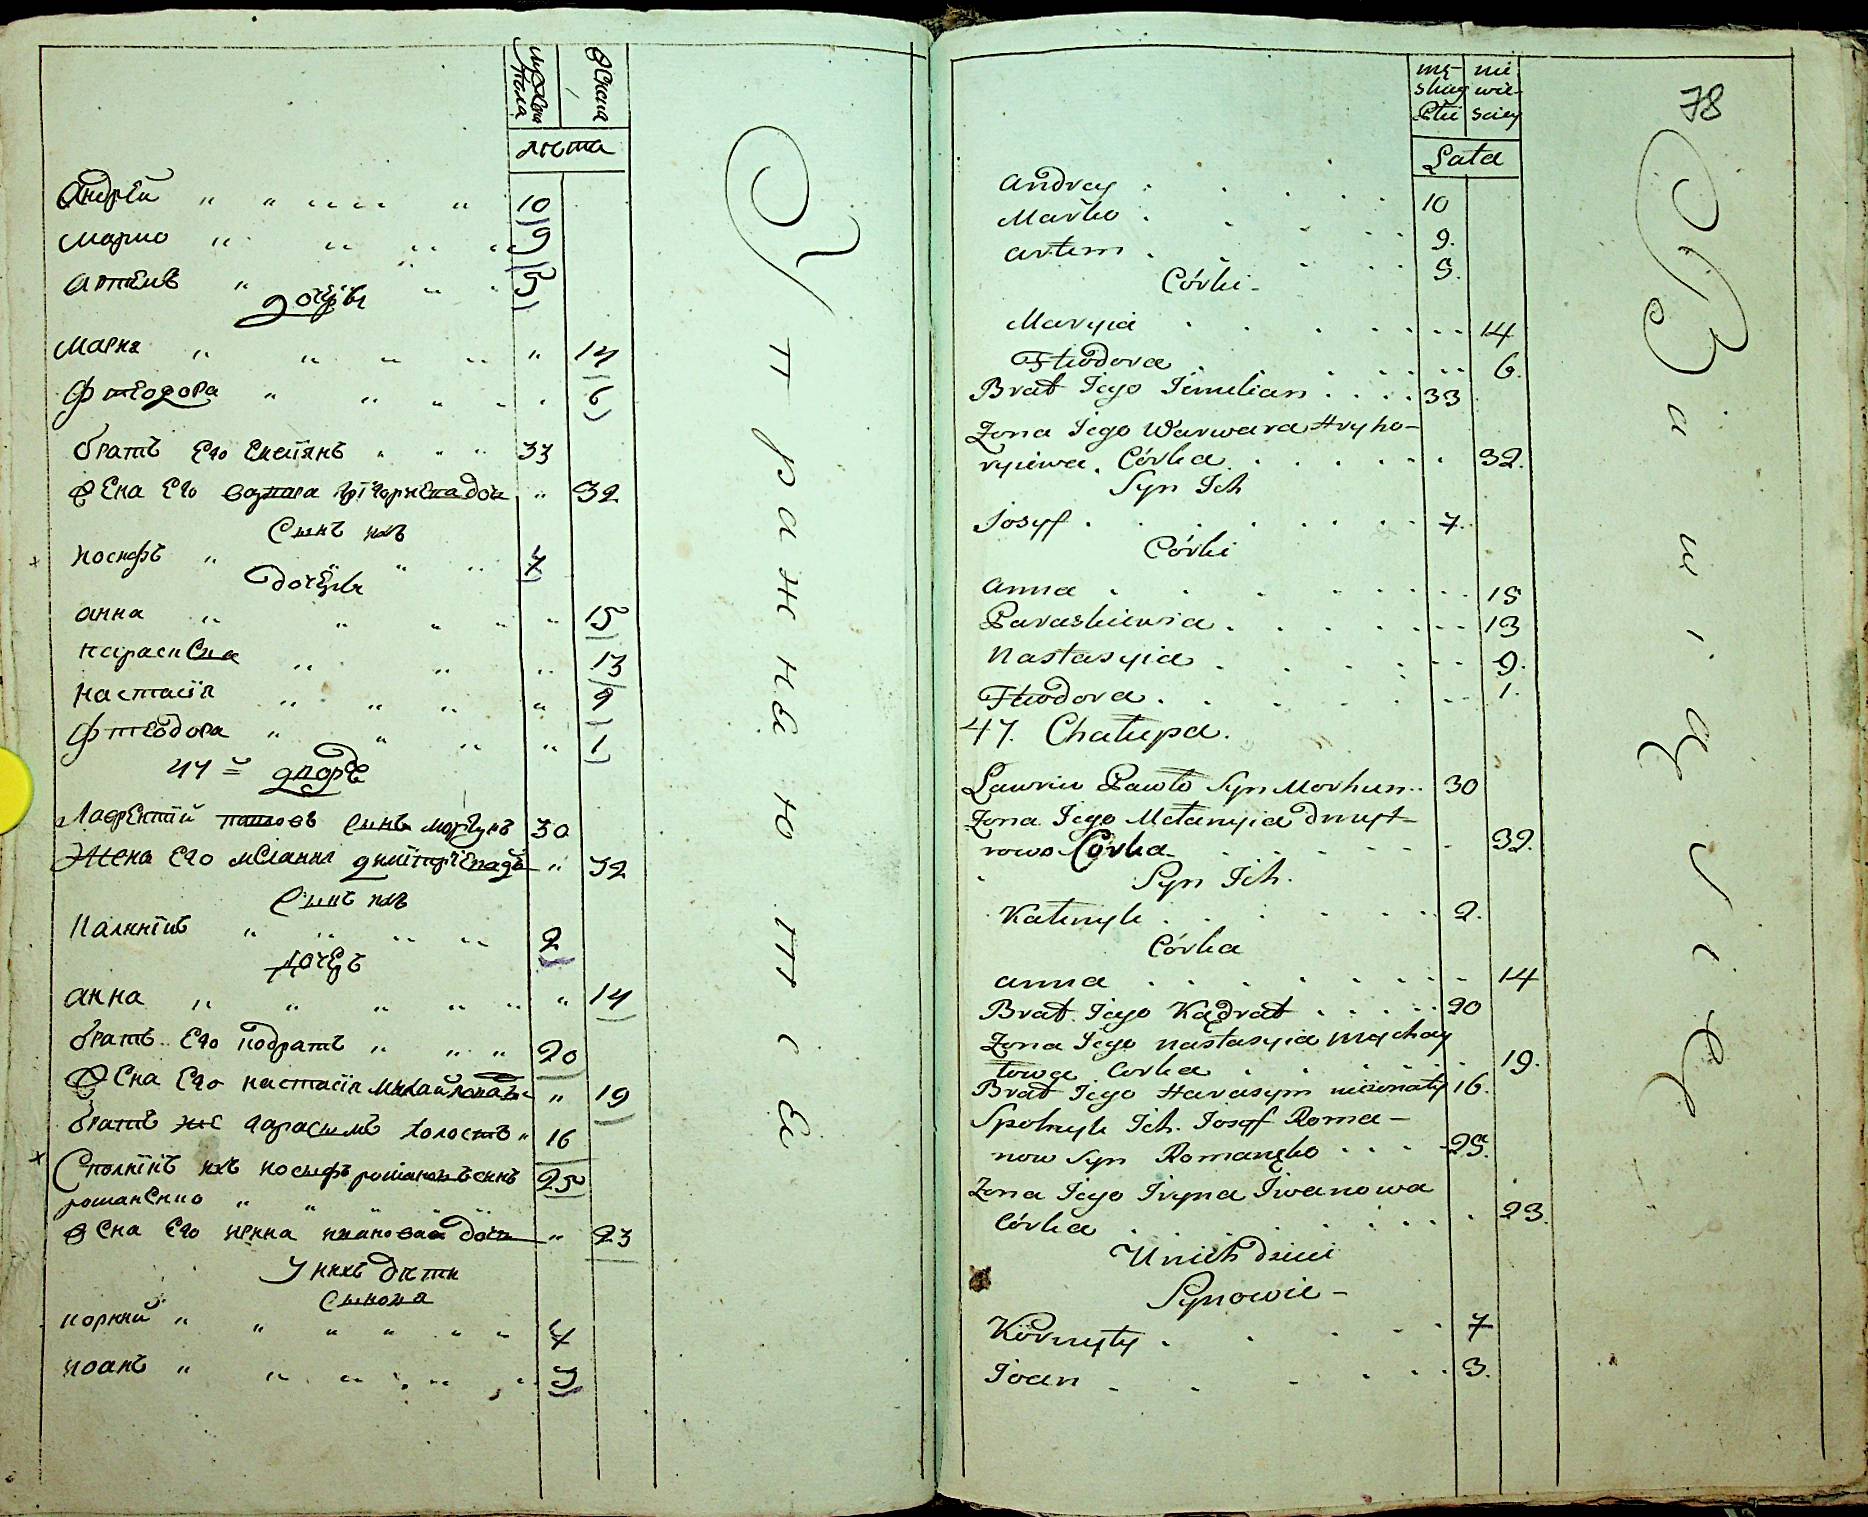 мужеска пола
женска
лѣта
Андрей 10
Марко 9
Артемъ 5
дочери
Мария 14
Фтеодора 6
братъ Его Емелiянъ 33
жена Его варвара григориева дочь 32
Сынъ ихъ
Иосифъ 7
дочери
анна 15
параскева 13
настасiя 9
Фтеодора 1
47 й дворъ
Лаврентiй павловъ сынъ моргунъ 30
Жена Его мелания димитрiева дочь 32
Сынъ ихъ
Каленикъ 2
дочерь
анна 14
братъ Его кодратъ 20
жена Его настасiя михайлова дочь 19
братъ же гарасимъ холостъ 16
Сполникъ ихъ иосифъ романовъ сынъ 25
романенко
жена Его ирина иванова дочь 23
у нихъ дѣти
Сынова
корний 7
иоанъ 3
Упражнаются
78
męskiey płci
niewieściey
Lata
Andrey 10
Marko 9.
Artem 5.
Córki
Maryia 14
Fteodora 6.
Brat Jego Jemilian 33
Zona Jego Warwara Hryho-
ryiewa Córka 32.
Syn Ich
Josyf 7.
Córki
Anna 15
Paraskiewia 13
Nastasyia 9.
Fteodora 1.
47. Chałupa.
Lawrin Pawło Syn Morhun 30
Zona Jego Mełanyia Dmyt-
rowa Córka 32.
Syn Ich.
Kałenyk 2.
Córka
Anna 14
Brat Jego Kądrat 20
Zona Jego Nastasyia Mychay
łowa Corka 19.
Brat Jego Harasym nieżonaty 16.
Spolnyk Ich Iosyf Roma-
now Syn Romaneko 25.
Zona Jego Iryna Iwanowa
Córka 23.
U nich dzieci
Synowie
Kornyły 7
Ioan 3.
Bawią się